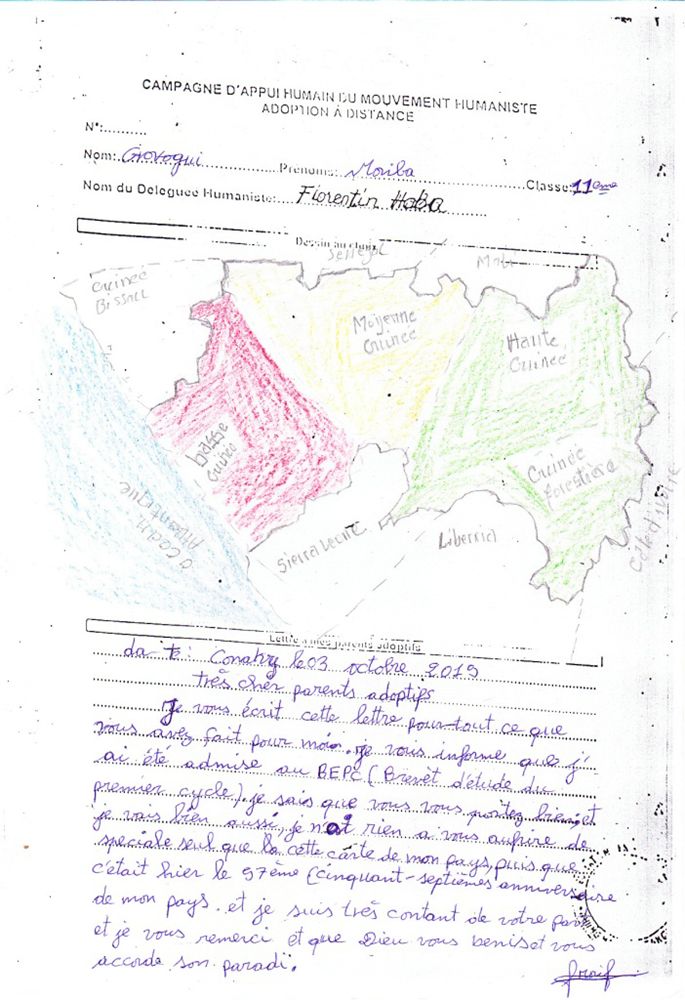 CAMPAGNE D'APPUI HUMAIN DU MOUVEMENT HUMANISTE
ADOPTION À DISTANCE
N°:..........
Nom: Govogui Prénoms: Moriba Classe: 11ème
Nom du Deleguee Humaniste: Florentin Haba
Dessin au choix
Senegal
Mali
Guineé
Bissau
Moyenne
Guinee
Haute
Guineé
basse
Guineé
Guineé
forestière
ocean
Atlantique
Sierra Leone
Liberia
Lettre à mes parents adoptifs
da te: Conakry le 03 octobre 2015
très cher parents adoptifs
Je vous écrit cette lettre pour tout ce que
vous avez fait pour moi. je vous informe que j'
ai été admise au BEPC (Brevêt d'étude du
premier cycle). je sais que vous vous portez bien, et
je vais bien aussi, je n'ai rien a vous aufrire de
speciale seul que la cette carte de mon pays, puis que
c'était hier le 57ème (cinquant-septièmes anniversaire
de mon pays. et je suis très contant de votre
et je vous remerci et que Dieu vous beniset vous
accorde son paradi.